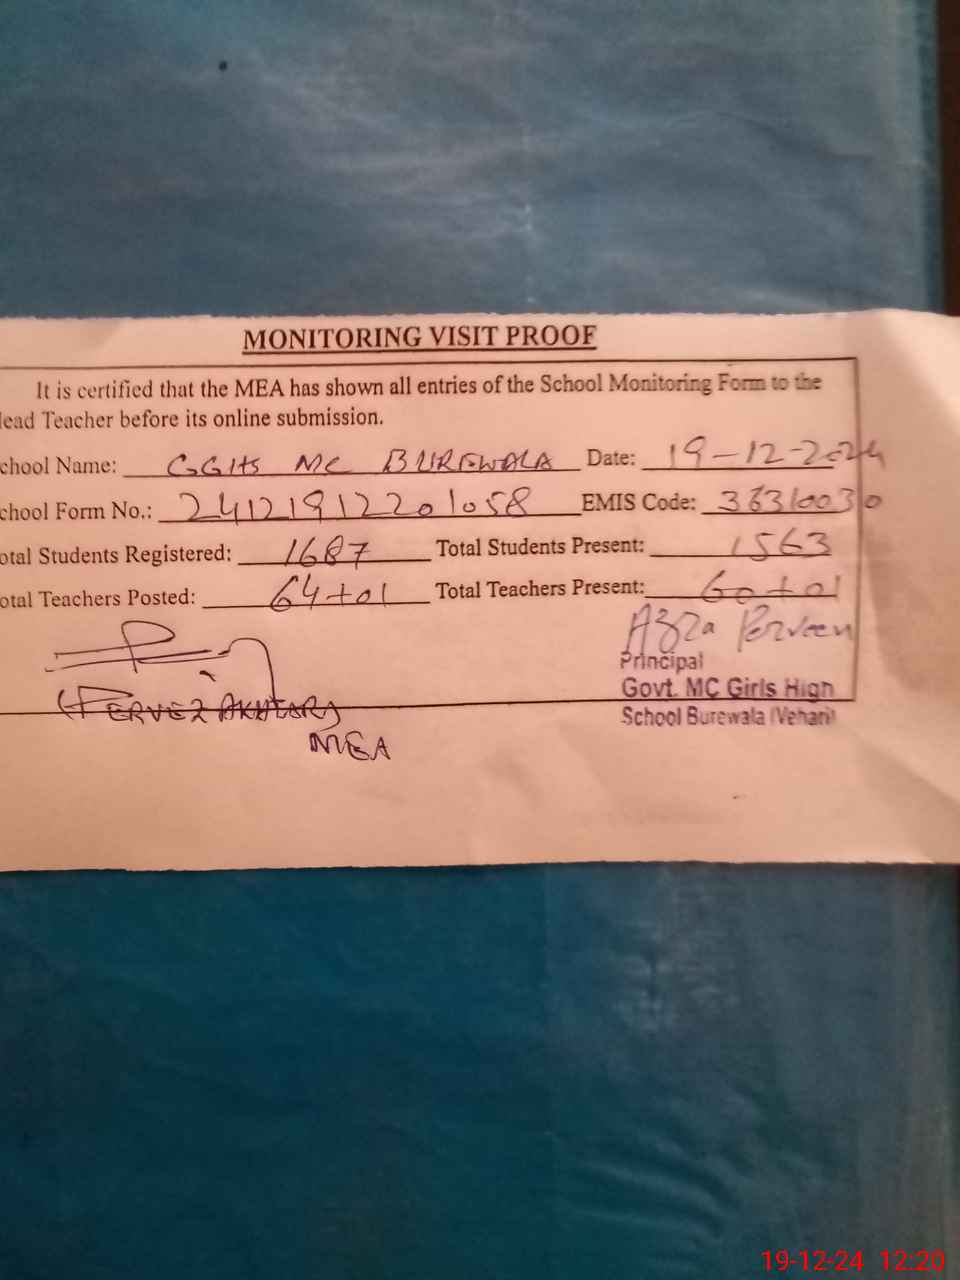 MONITORING VISIT PROOF
It is certified that the MEA has shown all entries of the School Monitoring Form to the
lead Teacher before its online submission.
chool Name: GGHS MC BUREWALA Date: 19-12-2024
chool Form No.: 24121912201058 EMIS Code: 36310030
otal Students Registered: 1687 Total Students Present: 1563
otal Teachers Posted: 64+01 Total Teachers Present: 60+01
Azra Perveen
Principal
Govt. MC Girls High
School Burewala (Vehari)
(PERVEZ AKHTAR)
MEA
19-12-24 12:20